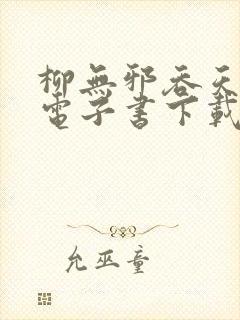 柳無邪吞天
電子書下載
允巫童